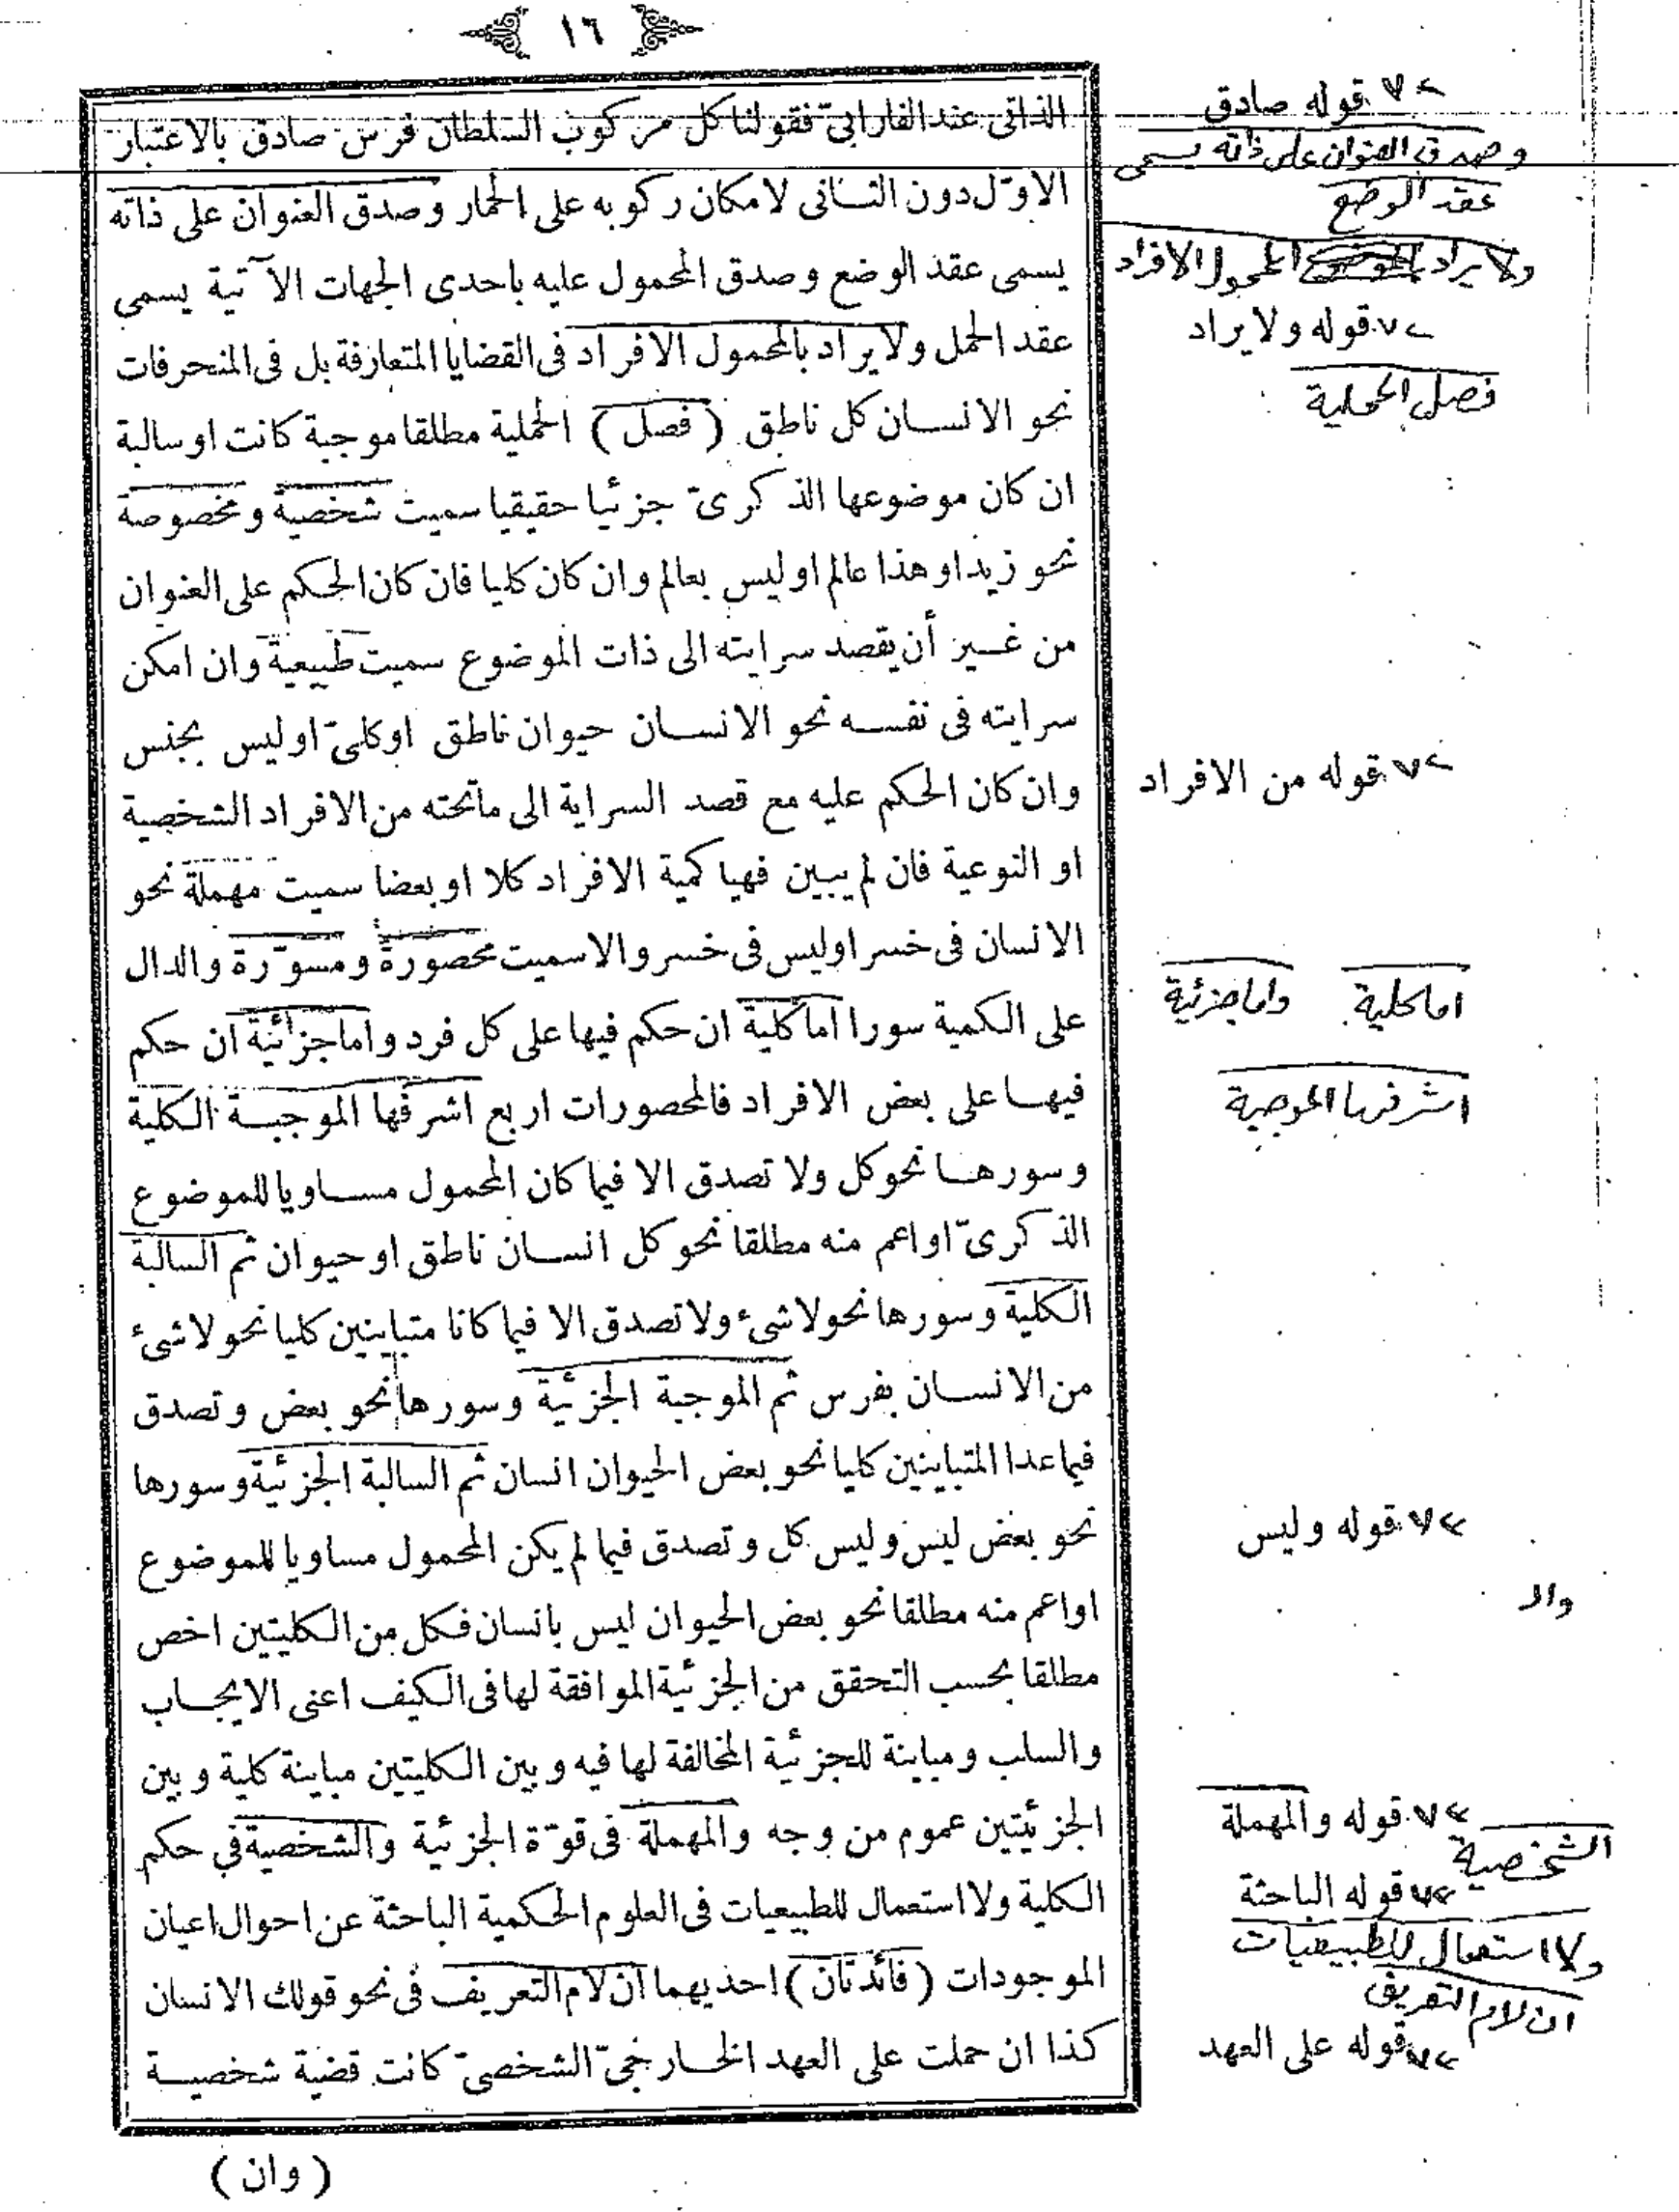 ١٦
الذاتى عند الفارابىّ فقولنا كل مركوب السلطان فرس صادق بالاعتبار
الاوّل دون الثانى لامكان ركوبه على الحمار وصدق العنوان على ذاته
يسمى عقد الوضع وصدق المحمول عليه باحدى الجهات الآتية يسمى
عقد الحمل ولا يراد بالمحمول الافراد فى القضايا المتعارفة بل فى المنحرفات
نحو الانسان كل ناطق ( فصل ) الحملية مطلقا موجبة كانت او سالبة
ان كان موضوعها الذكرىّ جزئيا حقيقيا سميت شخصية ومخصوصة
نحو زيد او هذا عالم او ليس بعالم وان كان كليا فان كان الحكم على العنوان
من غير أن يقصد سرايته الى ذات الموضوع سميت طبيعية وان امكن
سرايته فى نفسه نحو الانسان حيوان ناطق اوكلىّ او ليس بجنس
وان كان الحكم عليه مع قصد السراية الى ماتحته من الافراد الشخصية
او النوعية فان لم يبين فهيا كمية الافراد كلا او بعضا سميت مهملة نحو
الانسان فى خسر او ليس فى خسر والا سميت محصورة ومسوّرة والدال
على الكمية سورا اما كلية ان حكم فيها على كل فرد واما جزائية ان حكم
فيهـا على بعض الافراد فالمحصورات اربع اشرفها الموجبة الكلية
وسورها نحو كل ولا تصدق الا فيما كان المحمول مساويا للموضوع
الذكرىّ او اعم منه مطلقا نحو كل انسان ناطق او حيوان ثم السالبة
الكلية وسورها نحو لاشىء ولا تصدق الا فيما كانا متباينين كليا نحو لاشىء
من الانسان بفرس ثم الموجبة الجزئية وسورها نحو بعض وتصدق
فيما عدا المتباينين كليا نحو بعض الحيوان انسان ثم السالبة الجزئية وسورها
نحو بعض ليس وليس كل وتصدق فيما لم يكن المحمول مساويا للموضوع
او اعم منه مطلقا نحو بعض الحيوان ليس بانسان فكل من الكليتين اخص
مطلقا بحسب التحقق من الجزئية الموافقة لها فى الكيف اعنى الايجاب
والسلب ومباينة للجزئية المخالفة لها فيه وبين الكليتين مباينة كلية وبين
الجزئيتين عموم من وجه والمهملة فى قوّة الجزئية والشخصية في حكم
الكلية ولا استعمال للطبيعيات فى العلوم الحكمية الباحثة عن احوال اعيان
الموجودات ( فائدتان ) احديهما ان لام التعريف فى نحو قولك الانسان
كذا ان حملت على العهد الخارجىّ الشخصىّ كانت قضية شخصية
( وان )
٧ قوله صادق
وصدق العنوان على ذاته يسمى
عقد الوضع
ولا يراد المحمول الافراد
٧ قوله ولا يراد
فصل الحملية
٧ قوله من الافراد
اما كلية واما جزئية
اشرفها الموجبة
٧ قوله وليس
والـ
٧ قوله والمهملة
الشخصية
٧ قوله الباحثة
ولا استعمال للطبيعيات
ان لام التعريف
٧ قوله على العهد